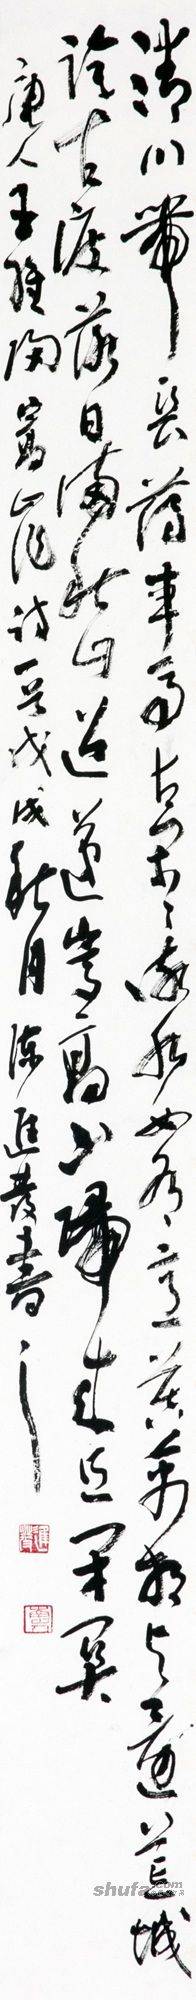 清川帶長薄車馬去閑閑流水如有意暮禽相與還荒城
臨古渡落日滿秋山迢遞嵩高下歸來且閉關
唐人王維歸嵩山作詩一首戊戌秋月陳進發書
shufa.com